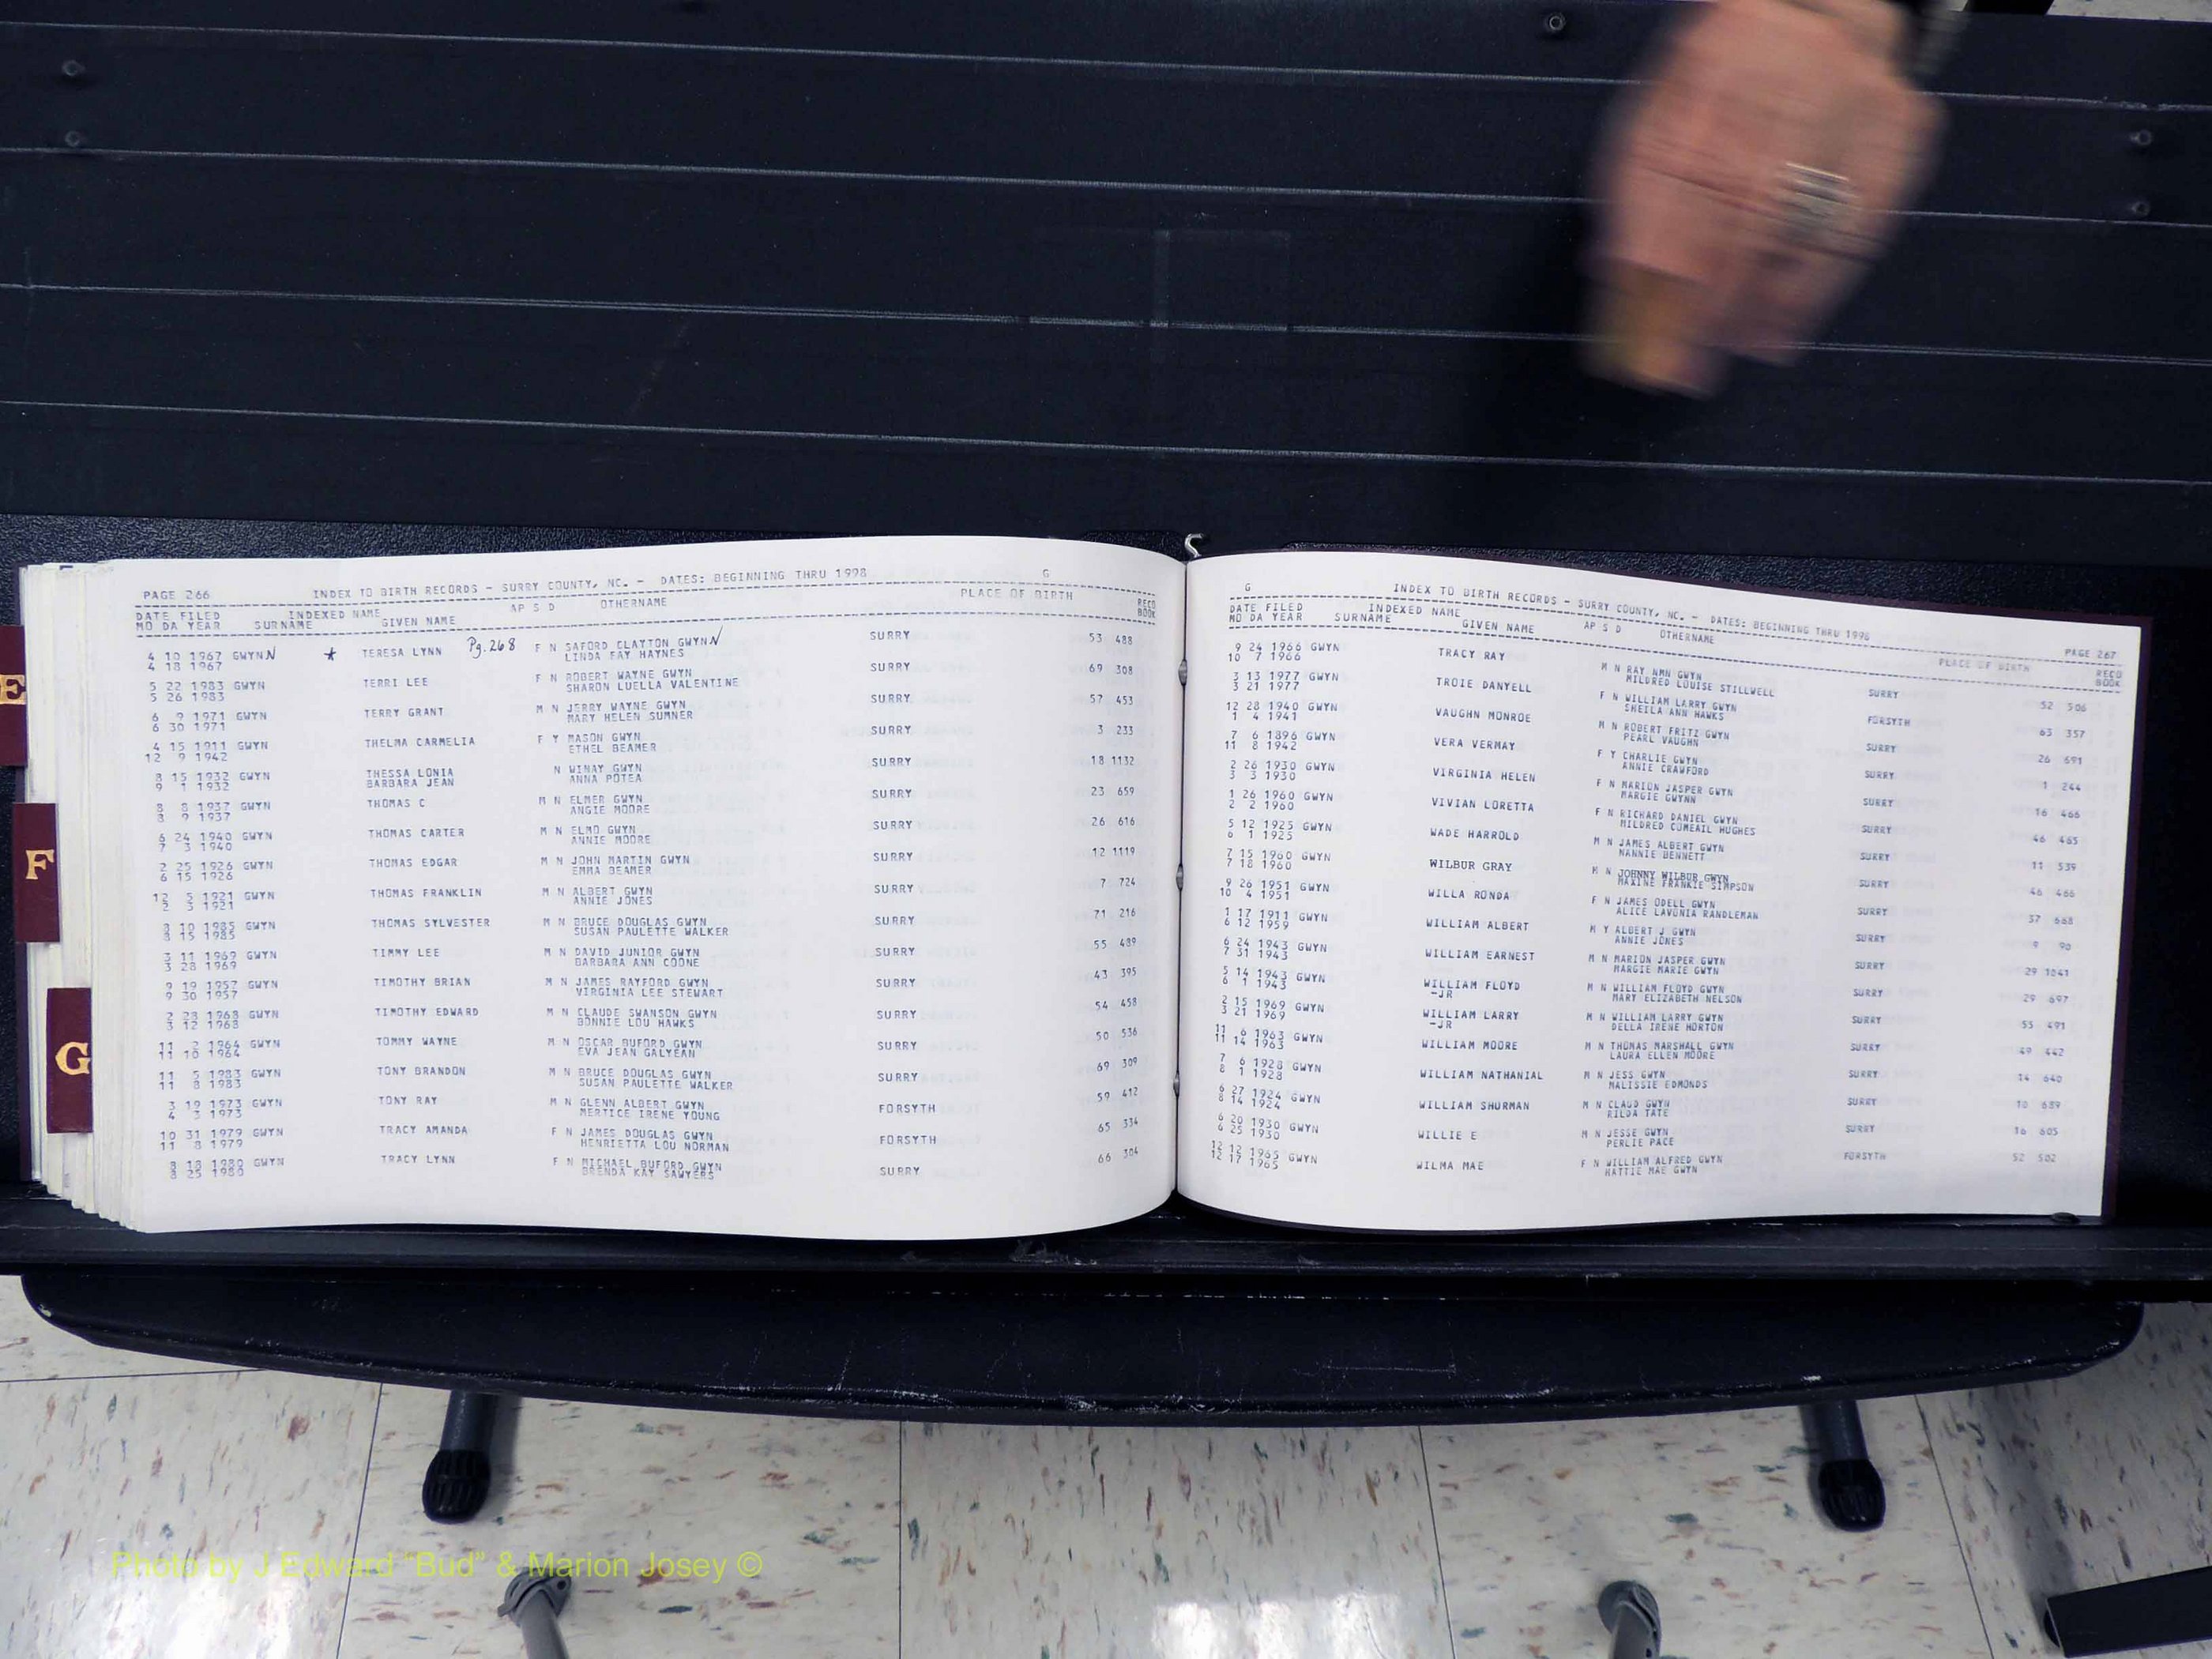 PAGE 266 INDEX TO BIRTH RECORDS - SURRY COUNTY, NC. - DATES: BEGINNING THRU 1998 G
DATE FILED INDEXED NAME AP S D OTHERNAME PLACE OF BIRTH RECD
MO DA YEAR SURNAME GIVEN NAME BOOK
4 10 1967 GWYNN * TERESA LYNN Pg. 268 F N SAFORD CLAYTON GWYNN SURRY 53 488
4 18 1967 LINDA FAY HAYNES
5 22 1983 GWYN TERRI LEE F N ROBERT WAYNE GWYN SURRY 69 308
5 26 1983 SHARON LUELLA VALENTINE
6 9 1971 GWYN TERRY GRANT M N JERRY WAYNE GWYN SURRY 57 453
6 30 1971 MARY HELEN SUMNER
4 15 1911 GWYN THELMA CARMELIA F Y MASON GWYN SURRY 3 233
12 9 1942 ETHEL BEAMER
8 15 1932 GWYN THESSA LONIA N WINAY GWYN SURRY 18 1132
9 1 1932 BARBARA JEAN ANNA POTEA
8 8 1937 GWYN THOMAS C M N ELMER GWYN SURRY 23 659
8 9 1937 ANGIE MOORE
6 24 1940 GWYN THOMAS CARTER M N ELMO GWYN SURRY 26 616
7 3 1940 ANNIE MOORE
2 25 1926 GWYN THOMAS EDGAR M N JOHN MARTIN GWYN SURRY 12 1119
6 15 1926 EMMA BEAMER
12 5 1921 GWYN THOMAS FRANKLIN M N ALBERT GWYN SURRY 7 724
2 3 1921 ANNIE JONES
8 10 1985 GWYN THOMAS SYLVESTER M N BRUCE DOUGLAS GWYN SURRY 71 216
8 15 1985 SUSAN PAULETTE WALKER
3 11 1969 GWYN TIMMY LEE M N DAVID JUNIOR GWYN SURRY 55 489
3 28 1969 BARBARA ANN COONE
9 19 1957 GWYN TIMOTHY BRIAN M N JAMES RAYFORD GWYN SURRY 43 395
9 30 1957 VIRGINIA LEE STEWART
2 28 1968 GWYN TIMOTHY EDWARD M N CLAUDE SWANSON GWYN SURRY 54 458
3 12 1968 BONNIE LOU HAWKS
11 2 1964 GWYN TOMMY WAYNE M N OSCAR BUFORD GWYN SURRY 50 536
11 10 1964 EVA JEAN GALYEAN
11 5 1983 GWYN TONY BRANDON M N BRUCE DOUGLAS GWYN SURRY 69 309
11 8 1983 SUSAN PAULETTE WALKER
3 19 1973 GWYN TONY RAY M N GLENN ALBERT GWYN FORSYTH 59 412
4 3 1973 MERTICE IRENE YOUNG
10 31 1979 GWYN TRACY AMANDA F N JAMES DOUGLAS GWYN FORSYTH 65 334
11 8 1979 HENRIETTA LOU NORMAN
8 18 1980 GWYN TRACY LYNN F N MICHAEL BUFORD GWYN SURRY 66 304
8 25 1980 BRENDA KAY SAWYERS
G INDEX TO BIRTH RECORDS - SURRY COUNTY, NC. - DATES: BEGINNING THRU 1998 PAGE 267
DATE FILED INDEXED NAME AP S D OTHERNAME PLACE OF BIRTH RECD
MO DA YEAR SURNAME GIVEN NAME BOOK
9 24 1966 GWYN TRACY RAY M N RAY NMN GWYN SURRY 52 506
10 7 1966 MILDRED LOUISE STILLWELL
3 13 1977 GWYN TROIE DANYELL F N WILLIAM LARRY GWYN FORSYTH 63 357
3 21 1977 SHEILA ANN HAWKS
12 28 1940 GWYN VAUGHN MONROE M N ROBERT FRITZ GWYN SURRY 26 691
1 4 1941 PEARL VAUGHN
7 6 1896 GWYN VERA VERMAY F Y CHARLIE GWYN SURRY 1 244
11 8 1942 ANNIE CRAWFORD
2 26 1930 GWYN VIRGINIA HELEN F N MARION JASPER GWYN SURRY 16 466
3 3 1930 MARGIE GWYNN
1 26 1960 GWYN VIVIAN LORETTA F N RICHARD DANIEL GWYN SURRY 46 465
2 2 1960 MILDRED COMEAIL HUGHES
5 12 1925 GWYN WADE HARROLD M N JAMES ALBERT GWYN SURRY 11 539
6 1 1925 NANNIE BENNETT
7 15 1960 GWYN WILBUR GRAY M N JOHNNY WILBUR GWYN SURRY 46 466
7 18 1960 MAXINE FRANKIE SIMPSON
9 26 1951 GWYN WILLA RONDA F N JAMES ODELL GWYN SURRY 37 668
10 4 1951 ALICE LAVONIA RANDLEMAN
1 17 1911 GWYN WILLIAM ALBERT M Y ALBERT J GWYN SURRY 9 90
6 12 1959 ANNIE JONES
6 24 1943 GWYN WILLIAM EARNEST M N MARION JASPER GWYN SURRY 29 1041
7 31 1943 MARGIE MARIE GWYN
5 14 1943 GWYN WILLIAM FLOYD M N WILLIAM FLOYD GWYN SURRY 29 697
6 1 1943 -JR MARY ELIZABETH NELSON
2 15 1969 GWYN WILLIAM LARRY M N WILLIAM LARRY GWYN SURRY 55 491
3 21 1969 -JR DELLA IRENE HORTON
11 6 1963 GWYN WILLIAM MOORE M N THOMAS MARSHALL GWYN SURRY 49 442
11 14 1963 LAURA ELLEN MOORE
7 6 1928 GWYN WILLIAM NATHANIAL M N JESS GWYN SURRY 14 640
8 1 1928 MALISSIE EDMONDS
6 27 1924 GWYN WILLIAM SHURMAN M N CLAUD GWYN SURRY 10 689
8 14 1924 RILDA TATE
6 20 1930 GWYN WILLIE E M N JESSE GWYN SURRY 16 605
6 25 1930 PERLIE PACE
12 12 1965 GWYN WILMA MAE F N WILLIAM ALFRED GWYN FORSYTH 52 502
12 17 1965 HATTIE MAE GWYN
E
F
G
Photo by J Edward "Bud" & Marion Josey ©